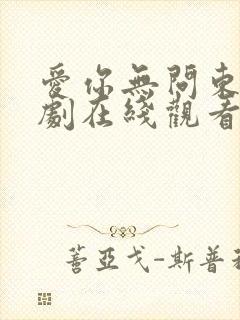 愛你無問東
劇在綫觀看
蓍亞戈-斯普